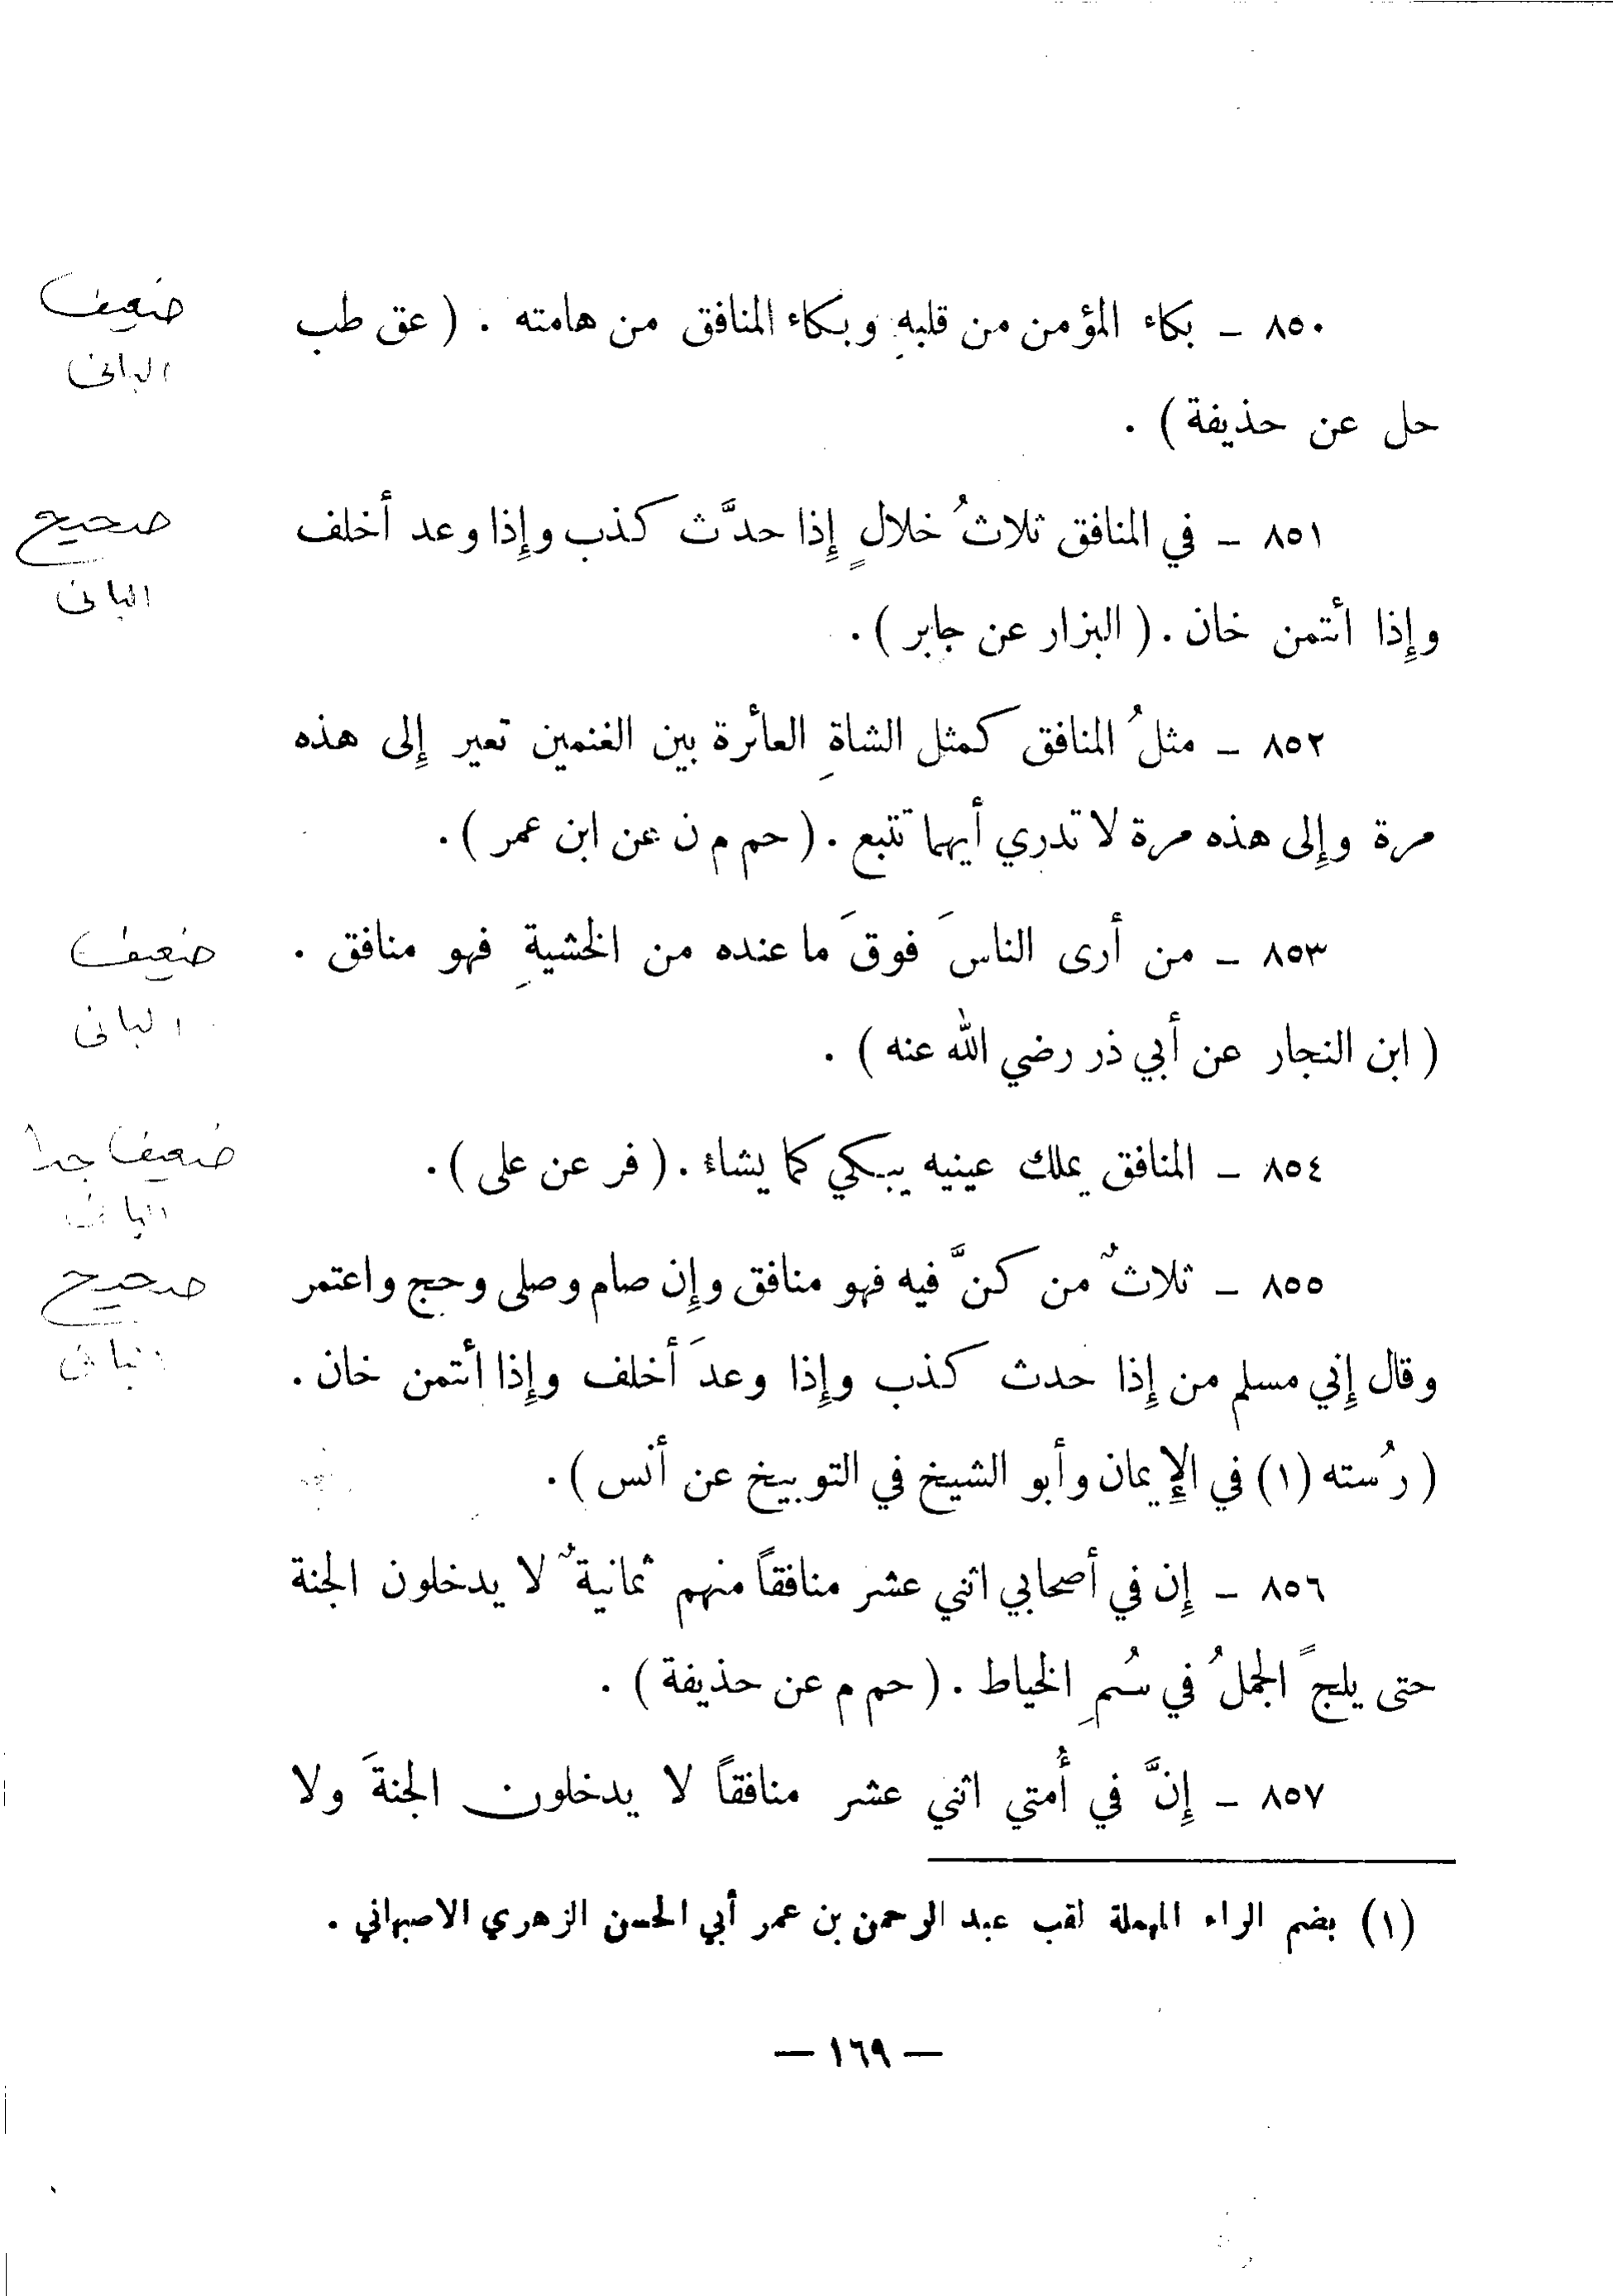 ٨٥٠ – بكاء المؤمن من قلبهِ وبكاء المنافق من هامته . ( عق طب
ضعيف
البانى
حل عن حذيفة ) .
٨٥١ – في المنافق ثلاثُ خلالٍ إِذا حدَّث كذب وإِذا وعد أخلف
صحيح
البانى
وإِذا أئتمن خان . ( البزار عن جابر ) .
٨٥٢ – مثلُ المنافق كمثل الشاةِ العأئرة بين الغنمين تعير إِلى هذه
مرة وإِلى هذه مرة لا تدري أيهما تتبع . ( حم م ن عن ابن عمر ) .
٨٥٣ – من أرى الناسَ فوقَ ما عنده من الخشيةِ فهو منافق .
ضعيف
البانى
( ابن النجار عن أبي ذر رضي الله عنه ) .
٨٥٤ – المنافق يملك عينيه يبكي كما يشاء . ( فر عن على ) .
ضعيف جدا
البانى
٨٥٥ – ثلاثٌ من كنَّ فيه فهو منافق وإِن صام وصلى وحج واعتمر
صحيح
البانى
وقال إِني مسلم من إِذا حدث كذب وإِذا وعدَ أخلف وإِذا أئتمن خان .
( رُسته (١) في الإِيمان وأبو الشيخ في التوبيخ عن أنس ) .
٨٥٦ – إِن في أصحابي اثني عشر منافقاً منهم ثمانيةٌ لا يدخلون الجنة
حتى يلجَ الجملُ في سُمِ الخياط . ( حم م عن حذيفة ) .
٨٥٧ – إِنَّ في أُمتي اثني عشر منافقاً لا يدخلون الجنةَ ولا
(١) بضم الراء المهملة لقب عبد الرحمن بن عمر أبي الحسن الزهري الاصبهاني .
— ١٦٩ —